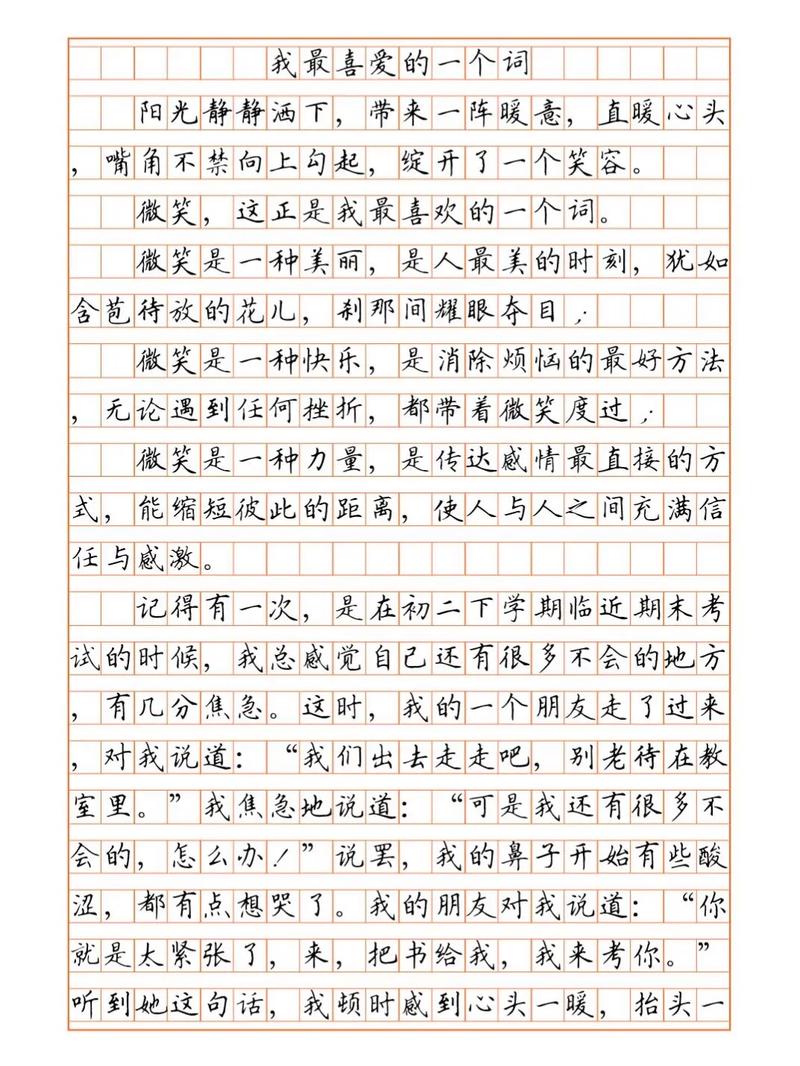 我最喜爱的一个词
阳光静静洒下，带来一阵暖意，直暖心头
，嘴角不禁向上勾起，绽开了一个笑容。
微笑，这正是我最喜欢的一个词。
微笑是一种美丽，是人最美的时刻，犹如
含苞待放的花儿，刹那间耀眼夺目；
微笑是一种快乐，是消除烦恼的最好方法
，无论遇到任何挫折，都带着微笑度过；
微笑是一种力量，是传达感情最直接的方
式，能缩短彼此的距离，使人与人之间充满信
任与感激。
记得有一次，是在初二下学期临近期末考
试的时候，我总感觉自己还有很多不会的地方
，有几分焦急。这时，我的一个朋友走了过来
，对我说道：“我们出去走走吧，别老待在教
室里。”我焦急地说道：“可是我还有很多不
会的，怎么办！”说罢，我的鼻子开始有些酸
涩，都有点想哭了。我的朋友对我说道：“你
就是太紧张了，来，把书给我，我来考你。”
听到她这句话，我顿时感到心头一暖，抬头一